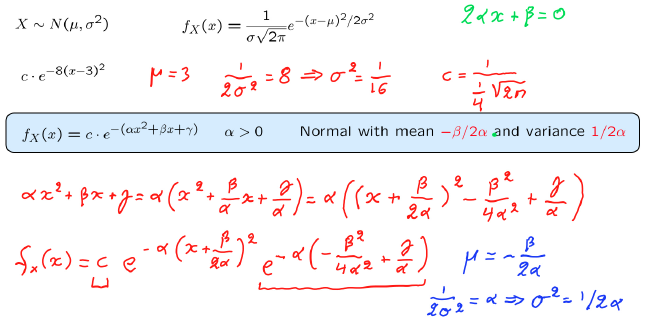 X ∼ N(μ, σ²)    f_X(x) = 1/(σ√2π) e^{-(x-μ)²/2σ²}    2αx + β = 0
c · e^{-8(x-3)²}    μ = 3    1/(2σ²) = 8 ⇒ σ² = 1/16    c = 1/(1/4 √2π)
f_X(x) = c · e^{-(αx²+βx+γ)}    α > 0    Normal with mean -β/2α and variance 1/2α
αx² + βx + γ = α(x² + β/α x + γ/α) = α((x + β/2α)² - β²/4α² + γ/α)
f_x(x) = c e^{-α(x + β/2α)²} e^{-α(-β²/4α² + γ/α)}    μ = -β/2α
1/(2σ²) = α ⇒ σ² = 1/2α